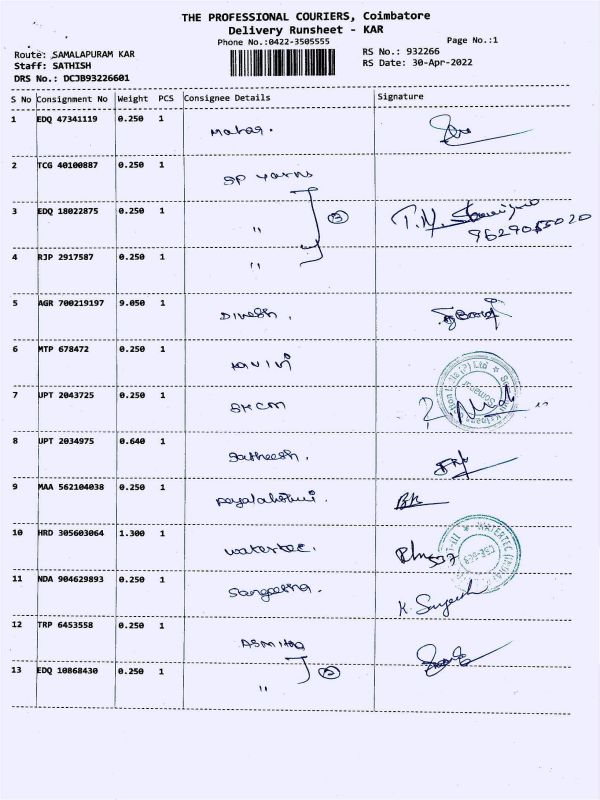 THE PROFESSIONAL COURIERS, Coimbatore
Delivery Runsheet - KAR
Phone No.:0422-3505555
Page No.:1
Route: SAMALAPURAM KAR
RS No.: 932266
Staff: SATHISH
RS Date: 30-Apr-2022
DRS No.: DCJB93226601
S No Consignment No Weight PCS Consignee Details Signature
1 EDQ 47341119 0.250 1
2 TCG 40100887 0.250 1 SP yarns
3 EDQ 18022875 0.250 1 " ③ T.M.
4 RJP 2917587 0.250 1 "
5 AGR 700219197 9.050 1 Dinesh.
6 MTP 678472 0.250 1
7 UPT 2043725 0.250 1 SHCM
8 UPT 2034975 0.640 1 Satheesh.
9 MAA 562104038 0.250 1
10 HRD 305603064 1.300 1 watertec. WATERTEC
11 NDA 904629893 0.250 1
12 TRP 6453558 0.250 1
13 EDQ 10868430 0.250 1 " ②